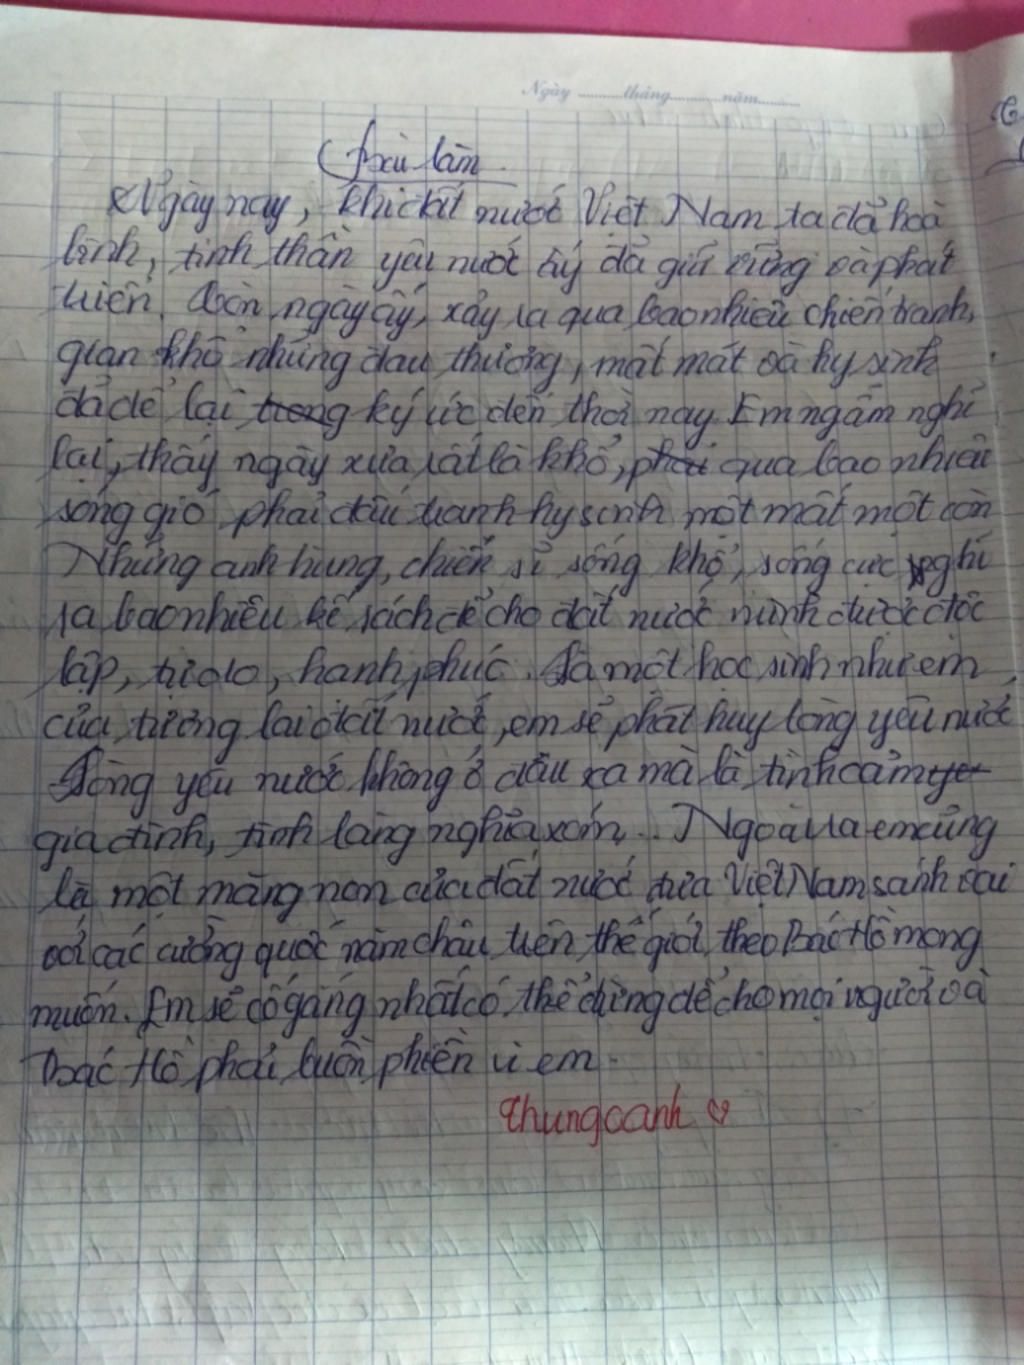 Ngày ......... tháng ......... năm .........
Bài làm
Ngày nay, khi đất nước Việt Nam ta đã hoà
bình, tinh thần yêu nước ấy đã giữ vững và phát
triển. Còn ngày ấy, xảy ra qua bao nhiêu chiến tranh,
gian khổ những đau thương, mất mát và hy sinh
đã để lại trong ký ức đến thời nay. Em ngẫm nghĩ
lại, thấy ngày xưa rất là khổ, phải qua bao nhiêu
sóng gió phải đấu tranh hy sinh một mất một còn
Những anh hùng, chiến sĩ sống khổ, sống cực nghĩ
ra bao nhiêu kế sách để cho đất nước mình được độc
lập, tự do, hạnh phúc. Là một học sinh như em,
của tương lai đất nước, em sẽ phát huy lòng yêu nước
Lòng yêu nước không ở đâu xa mà là tình cảm
gia đình, tình làng nghĩa xóm... Ngoài ra em cũng
là một măng non của đất nước đưa Việt Nam sánh vai
với các cường quốc năm châu trên thế giới theo Bác Hồ mong
muốn. Em sẽ cố gắng nhất có thể đừng để cho mọi người và
Bác Hồ phải buồn phiền vì em.